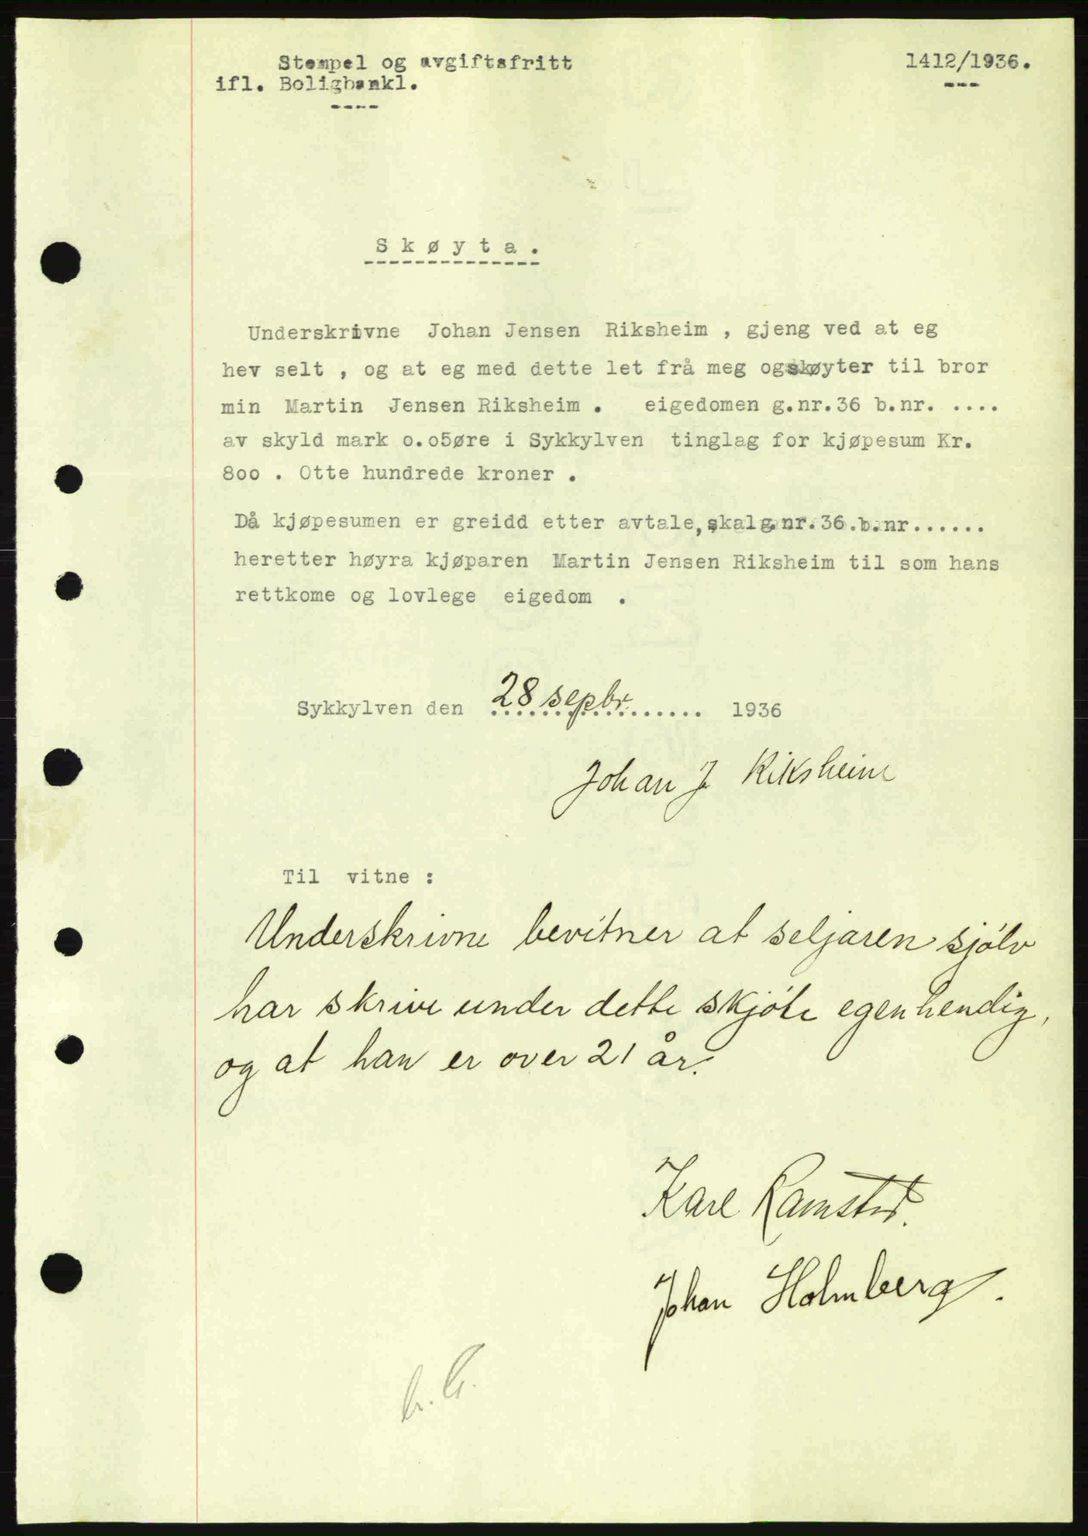 Stempel og avgiftsfritt 1412/1936.
ifl. Boligbankl. ---
----
Skøyta.
Underskrivne Johan Jensen Riksheim , gjeng ved at eg
hev selt , og at eg med dette let frå meg ogskøyter til bror
min Martin Jensen Riksheim . eigedomen g.nr.36 b.nr. ....
av skyld mark o.o5øre i Sykkylven tinglag for kjøpesum Kr.
8oo . Otte hundrede kroner .
Då kjøpesumen er greidd etter avtale,skal g.nr.36.b.nr......
heretter høyra kjøparen Martin Jensen Riksheim til som hans
rettkome og lovlege eigedom .
Sykkylven den 28 sepbr. 1936
Johan J Riksheim
Til vitne :
Underskrivne bevitner at seljaren sjólv
har skrive under dette skjóte egenhendig,
og at han er over 21 år.
Karl Ramstad.
Johan Holmberg.